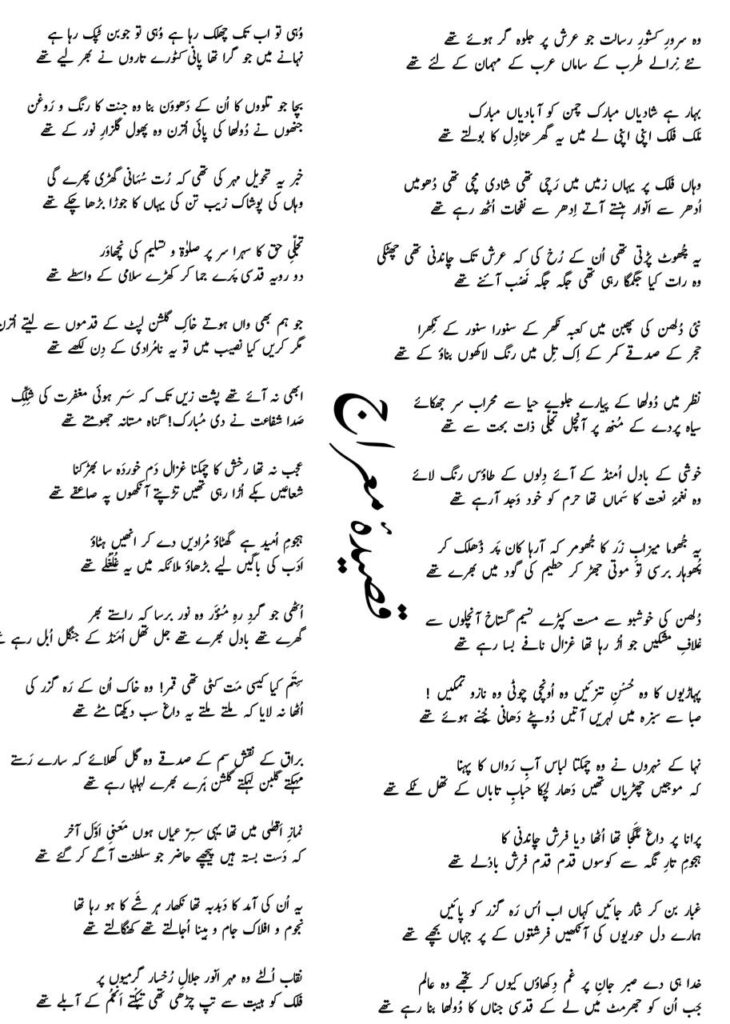 وہ سرورِ کشورِ رسالت جو عرش پر جلوہ گر ہوئے تھے
نئے نِرالے طرب کے ساماں عرب کے مہمان کے لئے تھے
بہار ہے شادیاں مبارک چمن کو آبادیاں مبارک
مَلک فلک اپنی اپنی لے میں یہ گھر عنادِل کا بولتے تھے
وہاں فلک پر یہاں زمیں میں رَچی تھی شادی مچی تھی دُھومیں
اُدھر سے اَنوار ہنستے آتے اِدھر سے نفحات اُٹھ رہے تھے
یہ چُھوٹ پڑتی تھی اُن کے رُخ کی کہ عرش تک چاندنی تھی چھٹکی
وہ رات کیا جگمگا رہی تھی جگہ جگہ نَصْب آئنے تھے
نئی دُلھن کی پھبن میں کعبہ نکھر کے سنورا سنور کے نکھرا
حجر کے صدقے کمر کے اِک تِل میں رنگ لاکھوں بناؤ کے تھے
نظر میں دُولھا کے پیارے جلوے حیا سے محراب سر جھکائے
سیاہ پردے کے مُنھ پر آنچل تجلّی ذاتِ بحت سے تھے
خوشی کے بادل اُمنڈ کے آئے دِلوں کے طاؤس رنگ لائے
وہ نغمۂ نعت کا سَماں تھا حرم کو خود وَجد آرہے تھے
یہ جُھوما میزابِ زَر کا جُھومر کہ آرہا کان پَر ڈھلک کر
پُھوہار برسی تو موتی جھڑ کر حطیم کی گود میں بھرے تھے
دُلھن کی خوشبو سے مست کپڑے نسیمِ گستاخ آنچلوں سے
غلافِ مشکیں جو اُڑ رہا تھا غزال نافے بسا رہے تھے
پہاڑیوں کا وہ حُسنِ تزئیں وہ اُونچی چوٹی وہ نازو تمکیں !
صبا سے سبزہ میں لہریں آتیں دُوپٹے دَھانی چُنے ہوئے تھے
نہا کے نہروں نے وہ چمکتا لباس آبِ رَواں کا پہنا
کہ موجیں چھڑیاں تھیں دَھار لچکا حبابِ تاباں کے تھل ٹکے تھے
پرانا پر داغ مَلگجا تھا اُٹھا دیا فرش چاندنی کا
ہجومِ تارِ نگہ سے کوسوں قدم قدم فرش بادلے تھے
غبار بن کر نثار جائیں کہاں اب اُس رَہ گزر کو پائیں
ہمارے دل حوریوں کی آنکھیں فرشتوں کے پر جہاں بچھے تھے
خدا ہی دے صبر جانِ پر غم دِکھاؤں کیوں کر تجھے وہ عالم
جب اُن کو جھرمٹ میں لے کے قدسی جناں کا دُولھا بنا رہے تھے
قصیدۂ معراج
وُہی تو اب تک چھلک رہا ہے وُہی تو جوبن ٹپک رہا ہے
نہانے میں جو گرا تھا پانی کٹورے تاروں نے بھر لیے تھے
بچا جو تلووں کا اُن کے دَھووَن بنا وہ جنت کا رنگ و رَوغن
جنھوں نے دُولھا کی پائی اُترَن وہ پھول گلزارِ نور کے تھے
خبر یہ تحویلِ مہر کی تھی کہ رُت سُہانی گھڑی پھرے گی
وہاں کی پوشاک زیبِ تن کی یہاں کا جوڑا بڑھا چکے تھے
تجلّیِ حق کا سہرا سر پر صلوٰۃ و تسلیم کی نچھاوَر
دو رویہ قدسی پَرے جما کر کھڑے سلامی کے واسطے تھے
جو ہم بھی واں ہوتے خاکِ گلشن لپٹ کے قدموں سے لیتے اُترَن
مگر کریں کیا نصیب میں تو یہ نامُرادی کے دِن لکھے تھے
ابھی نہ آئے تھے پشتِ زیں تک کہ سَر ہوئی مغفرت کی شلّک
صَدا شفاعت نے دی مُبارک! گناہ مستانہ جھومتے تھے
عجب نہ تھا رخش کا چمکنا غزالِ دَم خوردَہ سا بھڑکنا
شعاعیں بکے اُڑا رہی تھیں تڑپتے آنکھوں پہ صاعقے تھے
ہجومِ اُمید ہے گھٹاؤ مُرادیں دے کر انھیں ہٹاؤ
اَدَب کی باگیں لیے بڑھاؤ ملائکہ میں یہ غُلْغُلے تھے
اُٹھی جو گردِ رہِ مُنوَّر وہ نور برسا کہ راستے بھر
گھرے تھے بادل بھرے تھے جل تھل اُمَنڈ کے جنگل اُبل رہے تھے
سِتَم کیا کیسی مَت کٹی تھی قمر! وہ خاک اُن کے رَہ گزر کی
اُٹھا نہ لایا کہ ملتے ملتے یہ داغ سب دیکھتا مٹے تھے
براق کے نقشِ سم کے صدقے وہ گل کھلائے کہ سارے رَستے
مہکتے گلبن لہکتے گلشن ہَرے بھرے لہلہا رہے تھے
نمازِ اَقصٰی میں تھا یہی سِرّ عیاں ہوں مَعنیِ اَوَّل آخر
کہ دَست بستہ ہیں پیچھے حاضر جو سلطنت آگے کر گئے تھے
یہ اُن کی آمد کا دَبدبہ تھا نکھار ہر شَے کا ہو رہا تھا
نجوم و افلاک جام و مِینا اُجالتے تھے کھنگالتے تھے
نقاب اُلٹے وہ مہرِ انور جلالِ رُخسار گرمیوں پر
فلک کو ہیبت سے تپ چڑھی تھی تپکتے اَنْجُم کے آبلے تھے